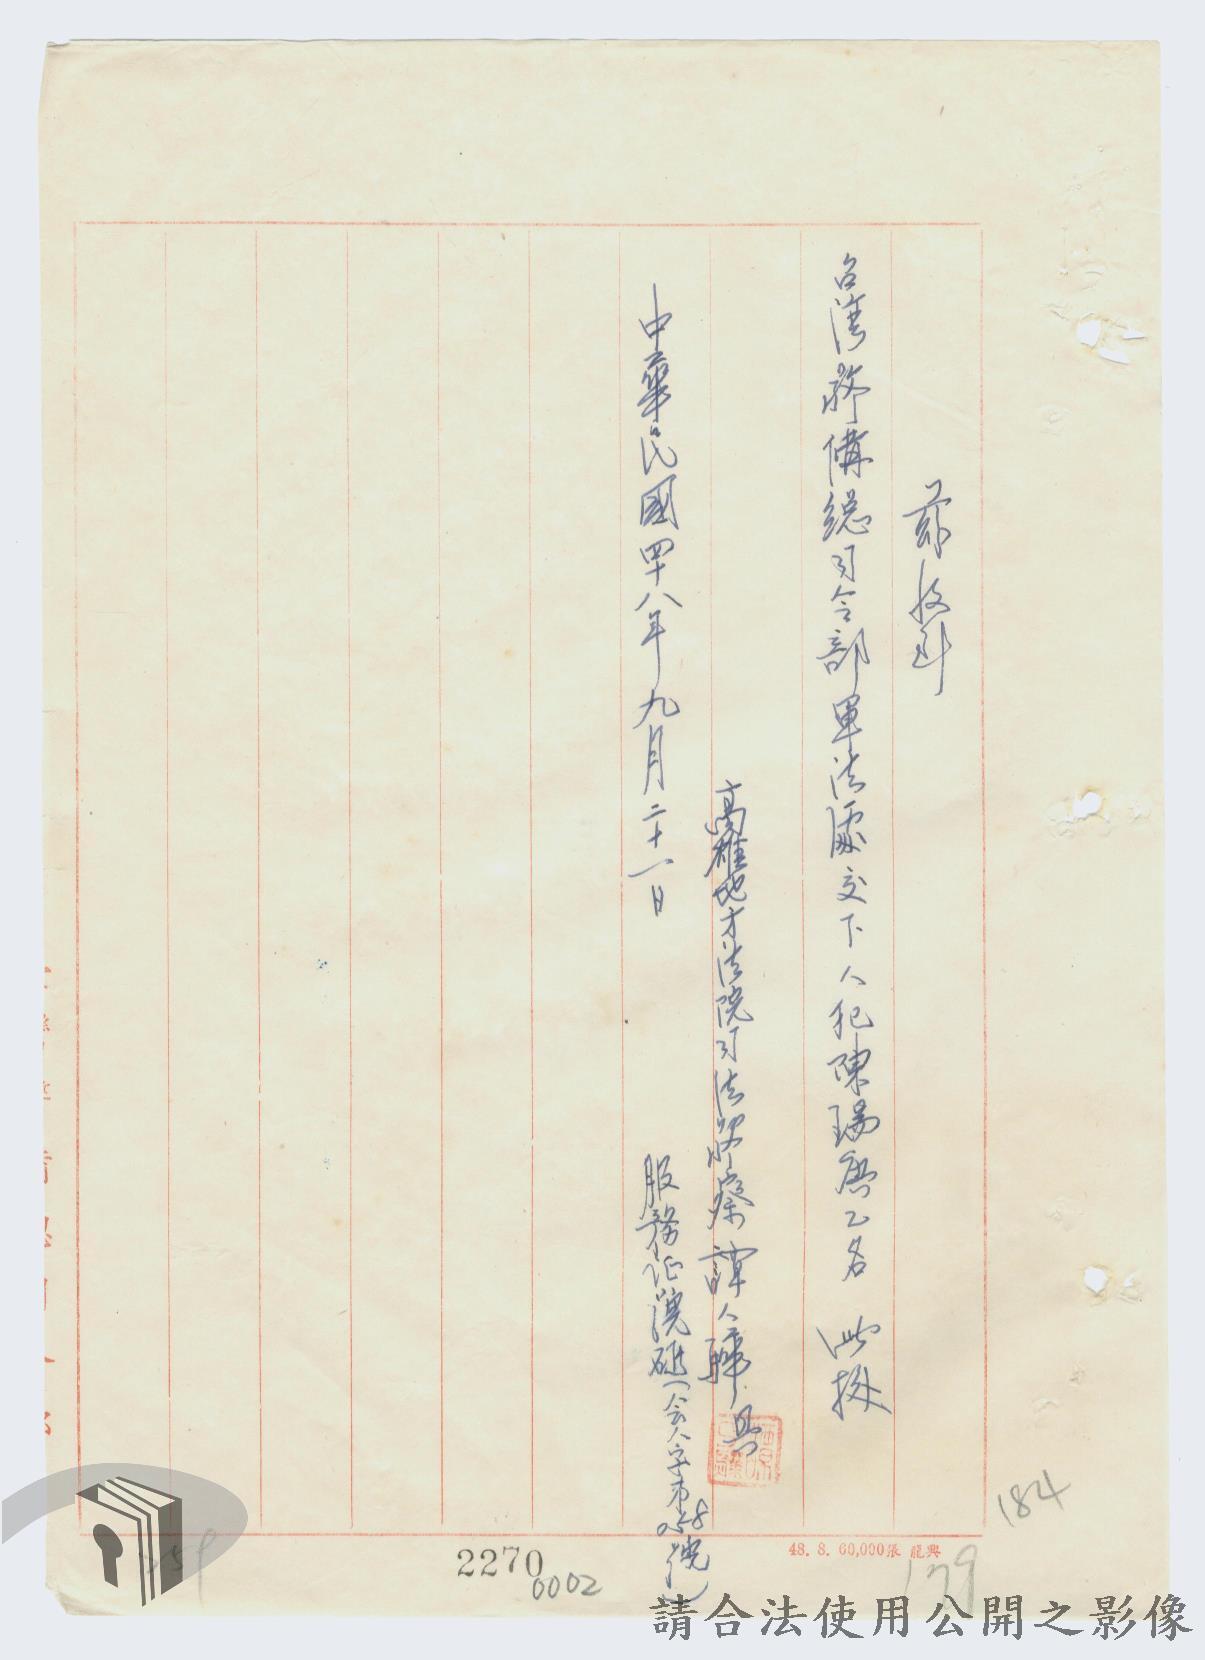 茲收到
台灣警備總司令部軍法處交下人犯陳瑞慶乙名 此據
高雄地方法院司法警察 譚人驊 具
中華民國四十八年九月二十一日
服務証號碼(會人字第058號)
48. 8. 60,000張 龍興
184
179
259
2270
0002
請合法使用公開之影像